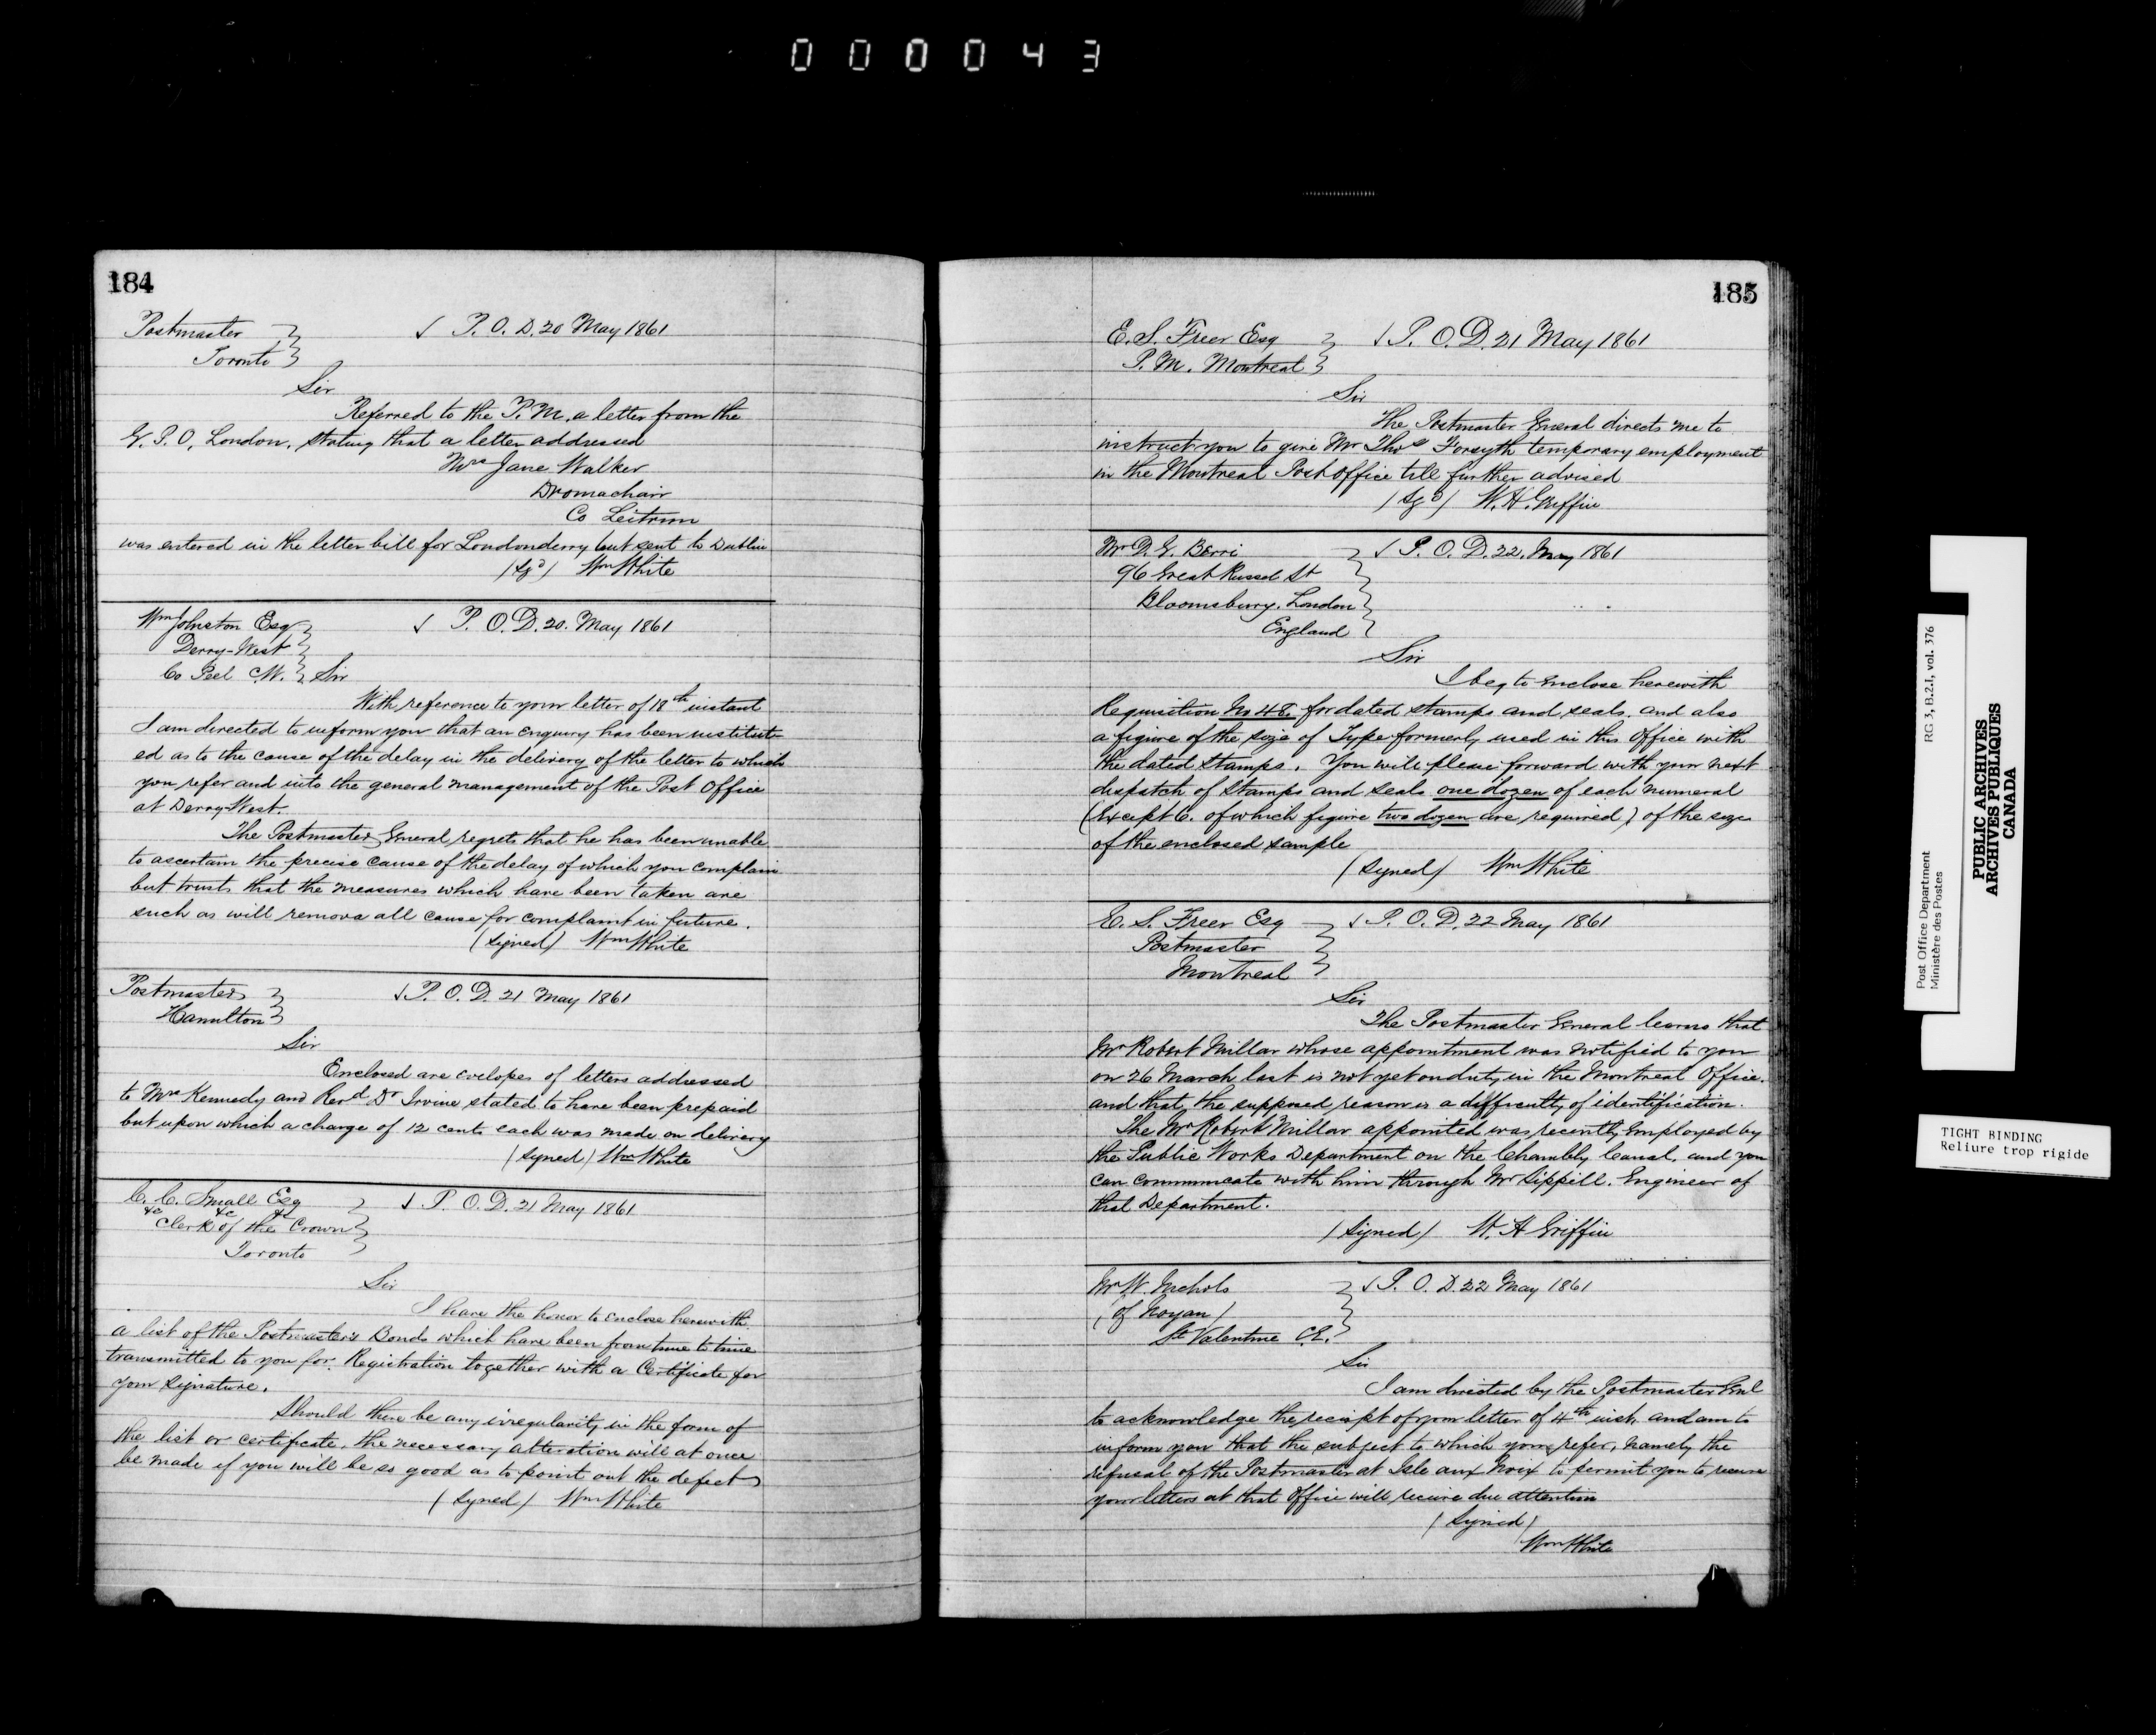 000043
184
Postmaster
Toronto
P. O. D. 20 May 1861
Sir
Referred to the P.M. a letter from the
G. P. O, London, stating that a letter addressed
Mrs Jane Walker
Dromachair
Co Leitrim
was entered in the letter bill for Londonderry but sent to Dublin
(Sgd) Wm White
Wm Johnston Esq
Derry-West
Co Peel C.W.
P. O. D. 20. May 1861
Sir
With reference to your letter of 18th instant
I am directed to inform you that an enquiry has been institut-
ed as to the cause of the delay in the delivery of the letter to which
you refer and into the general management of the Post Office
at Derry-West.
The Postmaster General regrets that he has been unable
to ascertain the precise cause of the delay of which you complain
but trusts that the measures which have been taken are
such as will remove all cause for complaint in future.
(Signed) Wm White
Postmaster
Hamilton
P. O. D. 21 May 1861
Sir
Enclosed are evelopes of letters addressed
to Mrs Kennedy and Revd Dr Irvine stated to have been prepaid
but upon which a charge of 12 cents each was made on delivery
(Signed) Wm White
C. C. Small Esq
&c &c &c
Clerk of the Crown
Toronto
P. O. D. 21 May 1861
Sir
I have the honor to enclose herewith
a list of the Postmaster's Bonds which have been from time to time
transmitted to you for Registration together with a Certificate for
your signature.
Should there be any irregularity in the form of
the list or certificate, the necessary alteration will at once
be made if you will be so good as to point out the defect
(Signed) Wm White
185
E. S. Freer Esq
P. M. Montreal
P. O. D. 21 May 1861
Sir
The Postmaster General directs me to
instruct you to give Mr Thos Forsyth temporary employment
in the Montreal Post Office till further advised
(Sgd) W. H. Griffin
Mr D. G. Berri
96 Great Russel St
Bloomsbury. London
England
P. O. D. 22. May 1861
Sir
I beg to enclose herewith
Requisition No 48 for dated stamps and seals. and also
a figure of the size of Type formerly used in this Office with
the dated stamps. You will please forward with your next
dispatch of stamps and seals one dozen of each numeral
(except 6. of which figure two dozen are required) of the size
of the enclosed sample
(Signed) Wm White
E. S. Freer Esq
Postmaster
Montreal
P. O. D. 22 May 1861
Sir
The Postmaster General learns that
Mr Robert Millar whose appointment was notified to you
on 26 March last is not yet on duty in the Montreal Office.
and that the supposed reason is a difficulty of identification.
The Mr Robert Millar appointed was recently employed by
the Public Works Department on the Chambly Canal, and you
can communicate with him through Mr Sippill. Engineer of
that Department.
(Signed) W. H Griffin
Mr W. Nichols
(of Noyan)
St Valentine C.E.
P. O. D. 22 May 1861
Sir
I am directed by the Postmaster Genl
to acknowledge the receipt of your letter of 4th inst. and am to
inform you that the subject to which you refer, namely the
refusal of the Postmaster at Isle aux Noix to permit you to receive
your letters at that Office will receive due attention
(Signed)
Wm White
Post Office Department
Ministère des Postes
RG 3, B.2.I, vol. 376
PUBLIC ARCHIVES
ARCHIVES PUBLIQUES
CANADA
TIGHT BINDING
Reliure trop rigide